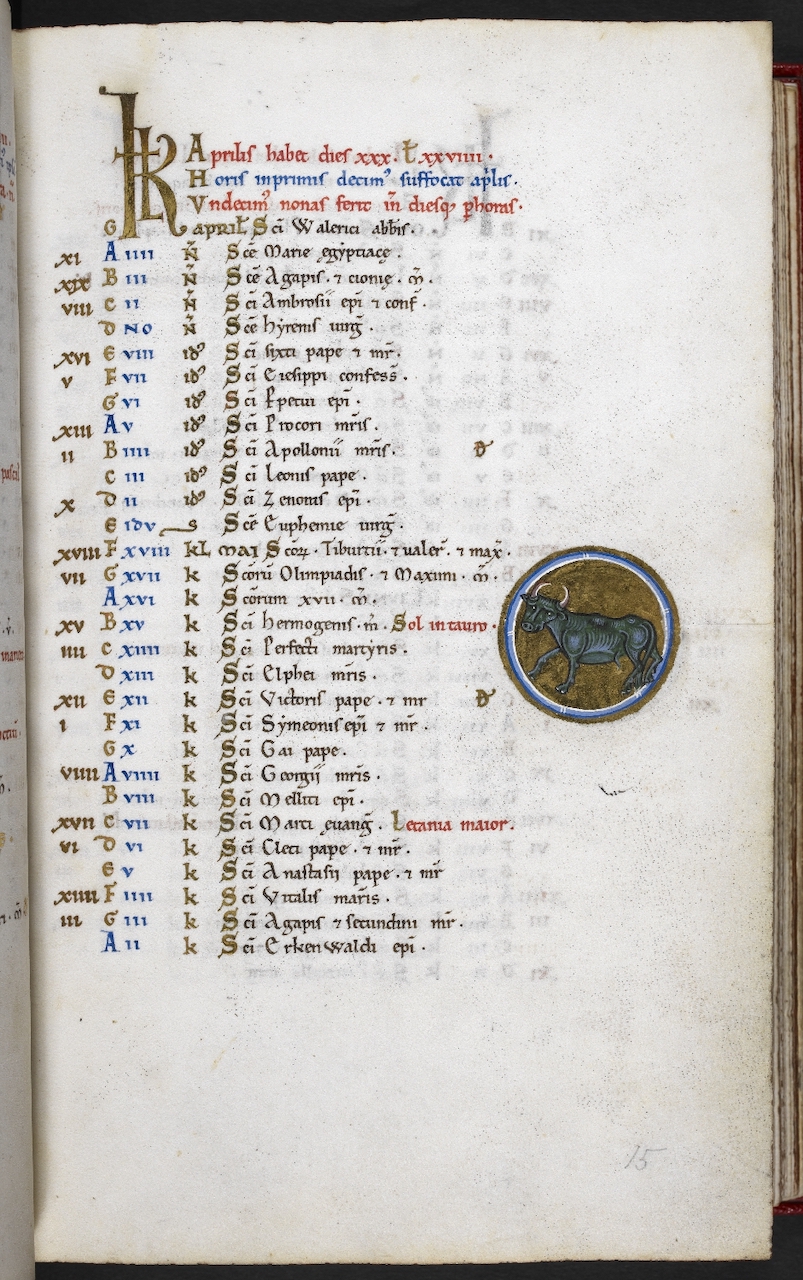 KL Aprilis habet dies xxx. L̄ xxviiii.
Horis inprimis decim᷒ suffocat ap̄lis.
Vndecim᷒ nonas ferit in̄ diesq; p̄horas.
G APRIL̄ Sc̄i Walerici abb̄is.
xi A iiii N̄ Sc̄e Marie ęgẏptiacę.
xix B iii N̄ Sc̄e Agapis. ⁊ cionię. m̄.
viii C ii N̄ Sc̄i Ambrosii ep̄i ⁊ conf̄.
D NO N̄ Sc̄e hẏrenis uirḡ.
xvi E viii id᷒ Sc̄i sixti pape ⁊ mr̄.
v F vii id᷒ Sc̄i Eiesippi confess̄.
G vi id᷒ Sc̄i Ꝑpetui ep̄i.
xiii A v id᷒ Sc̄i Procori mr̄is.
ii B iiii id᷒ Sc̄i Apollonii mr̄is. D̵
C iii id᷒ Sc̄i Leonis pape.
x D ii id᷒ Sc̄i Zenonis ep̄i.
E idv s Sc̄e Euphemie uirḡ.
xviii F xviii kL MAI Sc̄oꝝ. Tiburtii. ⁊ ualer̄. ⁊ max̄.
vii G xvii k Sc̄orū Olimpiadis. ⁊ Maximi. m̄.
A xvi k Sc̄orum xvii. m̄.
xv B xv k Sc̄i hermogenis. m̄. Sol in tauro.
iiii C xiiii k Sc̄i Perfecti martẏris.
D xiii k Sc̄i Elphei mr̄is.
xii E xii k Sc̄i Victoris pape. ⁊ mr D̵
i F xi k Sc̄i Sẏmeonis ep̄i ⁊ mr̄.
G x k Sc̄i Gai pape.
viiii A viiii k Sc̄i Georgii mr̄is.
B viii k Sc̄i Melliti ep̄i.
xvii C vii k Sc̄i Marci ęuang̅. Letania maior.
vi D vi k Sc̄i Cleti pape. ⁊ mr̄.
E v k Sc̄i Anastasii pape. ⁊ mr̄
xiiii F iiii k Sc̄i Vitalis mar̄is.
iii G iii k Sc̄i Agapis ⁊ secundini mr̄.
A ii k Sc̄i Erkenwaldi ep̄i.
15